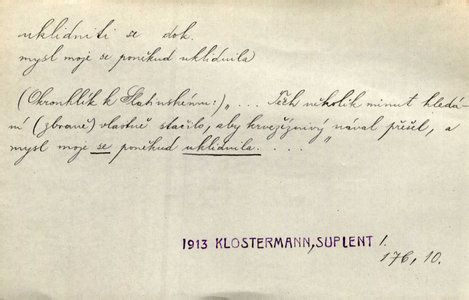 uklidniti se dok.
mysl moje se poněkud uklidnila
(Okrouhlík k Slatinskému:) „... Těch několik minut hledá-
ní (zbraně) vlastně stačilo, aby krvežíznivý nával přešel, a
mysl moje se poněkud uklidnila. . . . . "
1913 KLOSTERMANN, SUPLENT I.
176, 10.